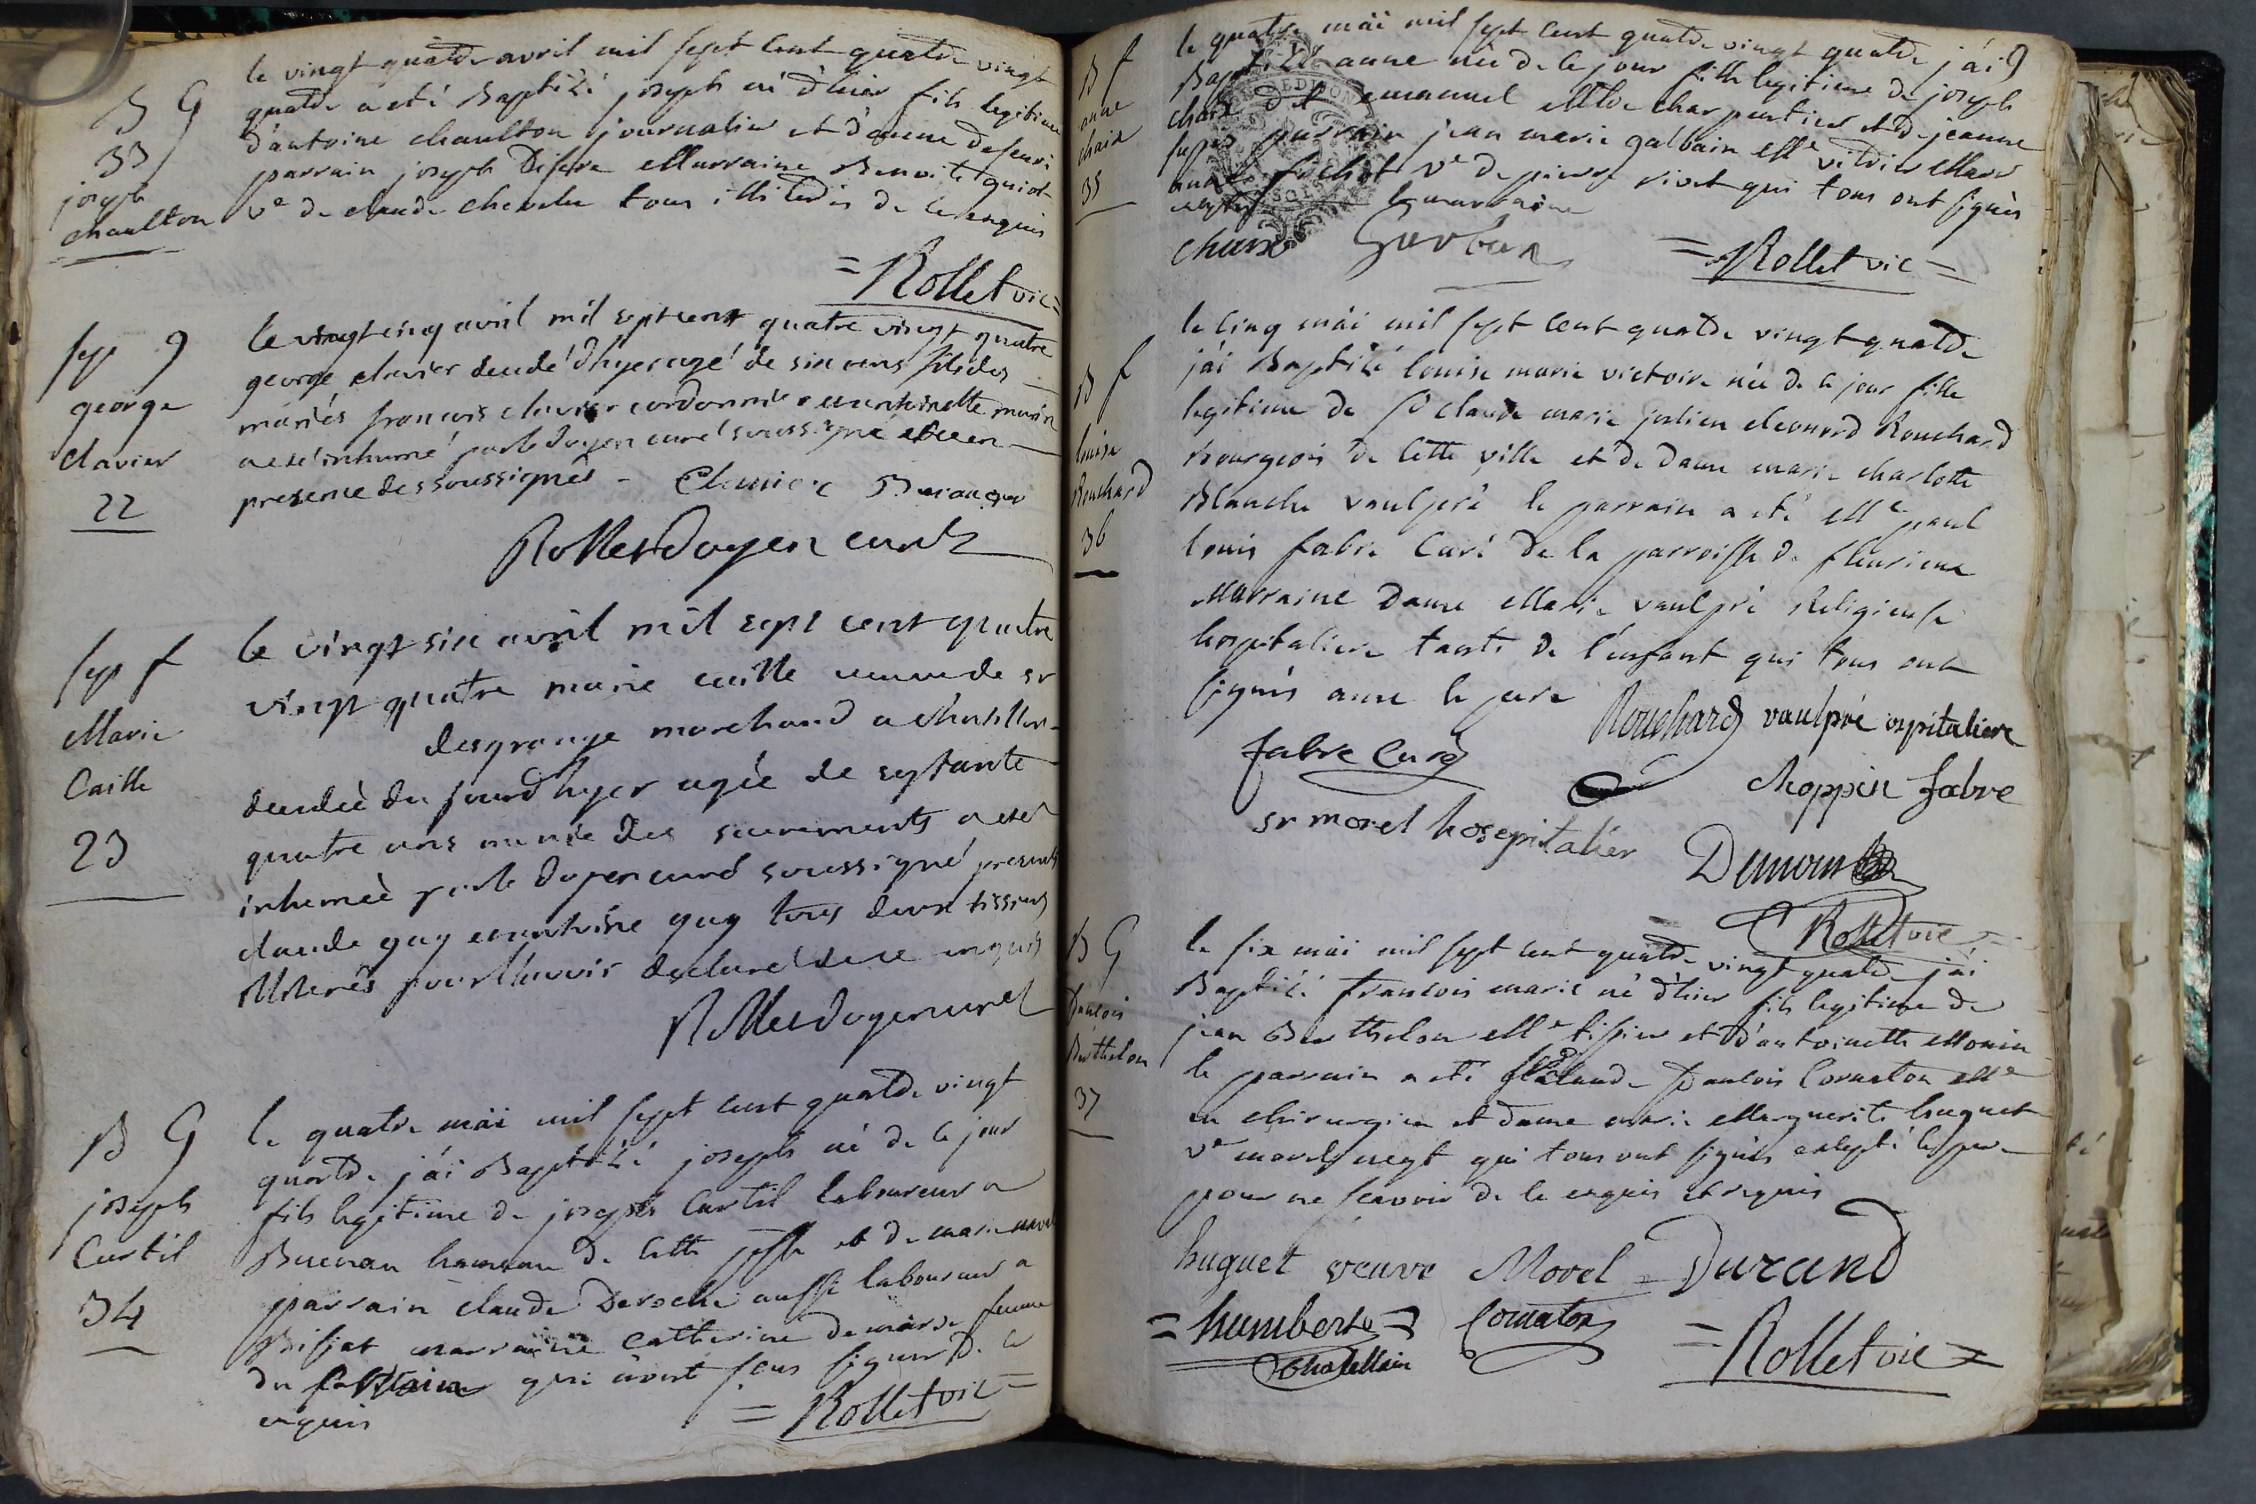 B G
33
joseph
chaulton
le vingt quatre avril mil sept cent quatre vingt
quatre a eté Baptisé joseph né d'hier fils legitime
d'antoine chaulton journalier et d'anne
parrain joseph marraine Benoite
ve de claude tous illiterés de ce enquis
= Rollet vic =
sep g
george
clavier
22
le vingt cinq avril mil sept cent quatre vingt quatre
george clavier decedé d'hyer agé de six ans fils des
mariés françois clavier cordonnier et antoinette morin
a eté inhumé par le doyen curé soussigné et en
presence des soussignés - Clavier
Rollet doyen curé
sep f
Marie
Caille
23
le vingt six avril mil sept cent quatre
vingt quatre marie caille veuve de sr
desgrange marchand a chatillon
decedeé du jourd'hyer agée de septante
quatre ans munie des sacrements a eté
inhumeé par le doyen curé soussigné presents
claude guy et antoine guy tous deux tissiers
illiterés pour l'avoir declaré de ce enquis
Rollet doyen curé
B G
joseph
Curtil
34
le quatre mäi mil sept cent quatre vingt
quatre j'ai Baptisé joseph né de ce jour
fils legitime de joseph Curtil laboureur a
Buenan hameau de cette psse et de marie
parrain claude Deroche aussi laboureur a
Bissiat marraine catherine femme
du qui n'ont sçus signer de ce
enquis
= Rollet vic =
B f
anne
chaix
35
le quatre mäi mil sept cent quatre vingt quatre j'ai
Baptisé anne née de ce jour fille legitime de joseph
chaix dit emanuel Me charpentier et de jeanne
parrain jean marie galbain Me vitrier Marr
ve de pierre rivet qui tous ont signés
excepté la marraine
chaix = Rollet vic =
B f
louise
Rouchard
36
le cinq mäi mil sept cent quatre vingt quatre
j'ai Baptisé louise marie victoire née de ce jour fille
legitime de sr claude marie julien eleonord Rouchard
Bourgeois de cette ville et de dame marie charlotte
Blanche vaulpré le parrain a eté Me paul
louis fabre curé de la parroisse de fleurieux
Marraine dame Marie vaulpré Religieuse
hospitaliere tante de l'enfant qui tous ont
signés avec le pere Rouchard vaulpré ospitaliere
fabre curé
choppin fabre
sr morel hosepitalier
Rollet vic
B G
francois
Berthelon
37
le six mäi mil sept cent quatre vingt quatre j'ai
Baptisé francois marie né d'hier fils legitime de
jean Berthelon Me tissier et d'antoinette Monin
le parrain a eté sr claude francois Cornaton Me
en chirurgien et dame marie Marguerite huguet
ve morel qui tous ont signés excepté le pere
pour ne sçavoir de ce enquis et requis
huguet veuve Morel = Durand
= humbert = Cornaton
Chatellain
= Rollet vic =